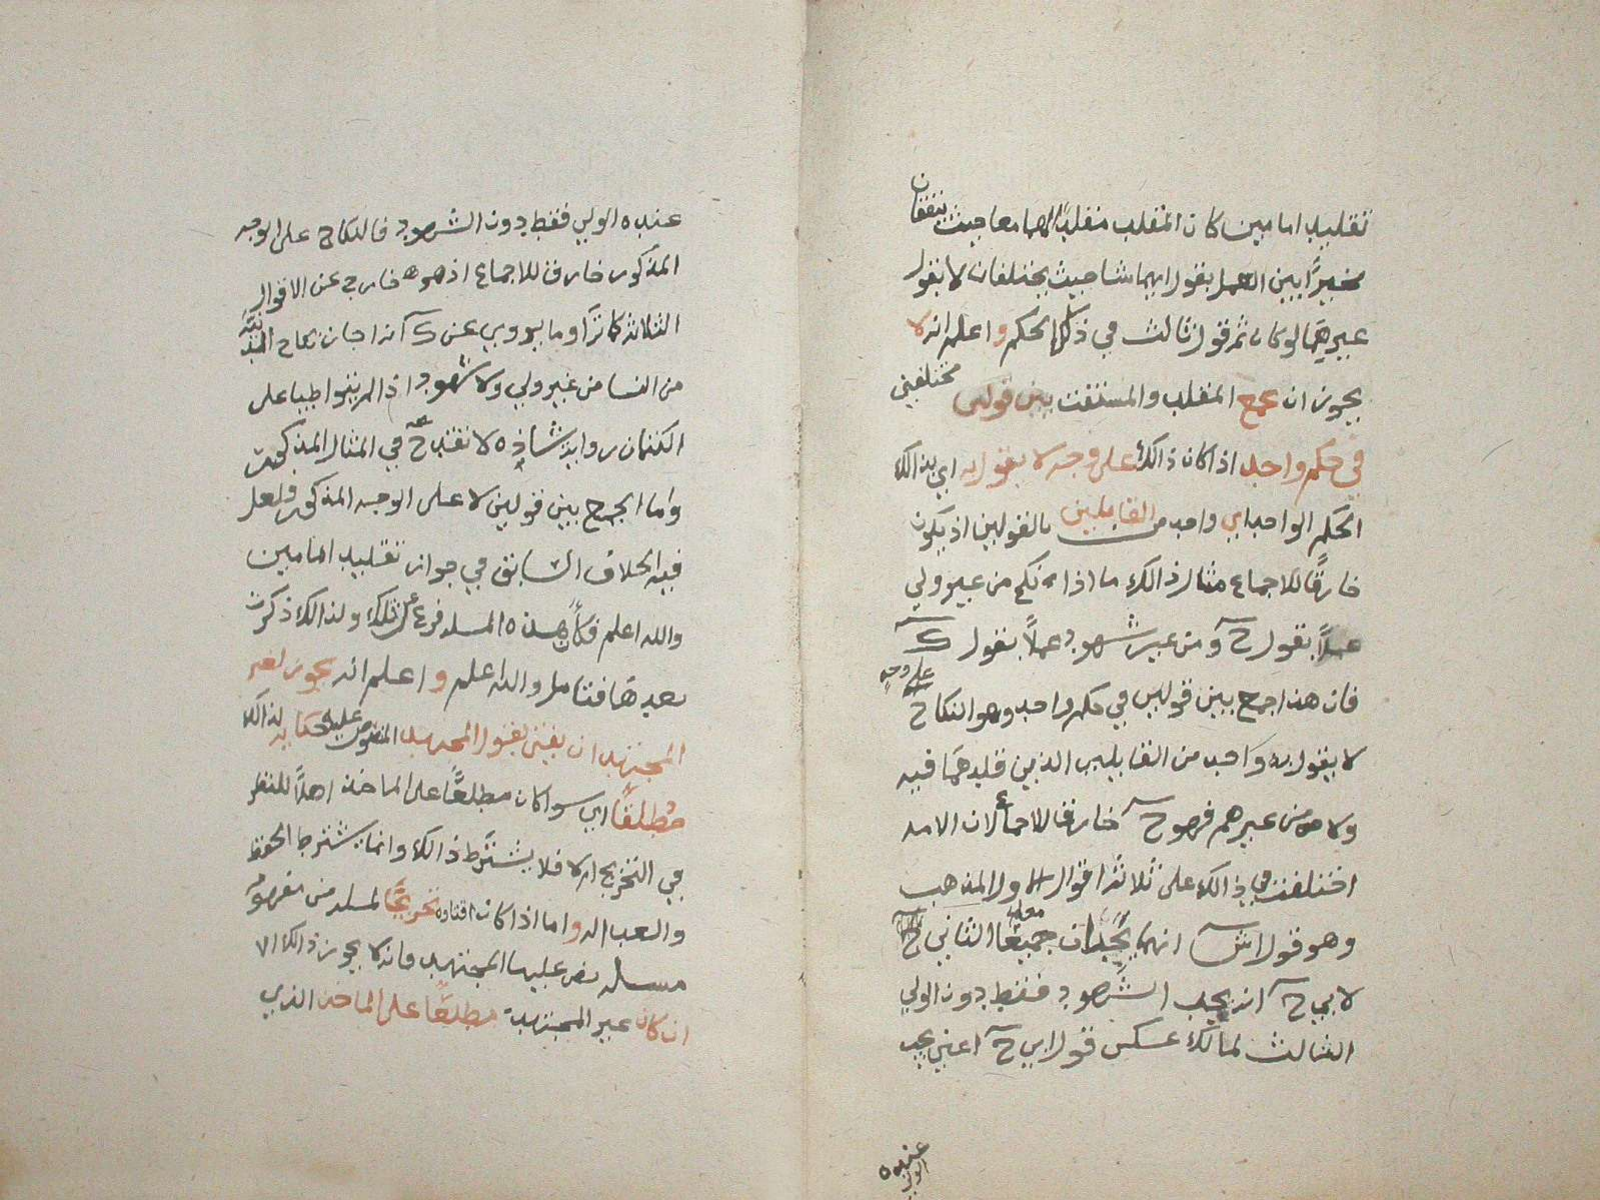 تقليد امامين كان المقلد مقلدًا لهما معا حيث يتفقان
مخيرًا بين العمل بقول ايهما شا حيث يختلفان لا بقول
غيرهما لو كان ثم قول ثالث في ذلك الحكم واعلم انه لا
يجوز ان يجمع المقلد والمستفت بين قولين مختلفين
في حكم واحد اذا كان ذالك على وجه لا يقول به اي بذالك
الحكم الواحد اي واحد من القايلين بالقولين اذ يكون
خارقًا للاجماع مثال ذالك ما اذا نكح من غير ولي
عملًا بقول ح ومن غير شهود عملًا بقول ك
فان هذا جمع بين قولين في حكم واحد وهو النكاح على وجه
لا يقول به واحد من القايلين الذين قلدهما فيه
ولا من غيرهم فهو ح خارق للاجماع لان الامه
اختلفت في ذالك على ثلاثة اقوال الاول المذهب
وهو قول ش انهما يجبان جميعًا معا الثاني
لابي ح انه يجب الشهود فقط دون الولي
الثالث لمالك عكس قول ابي ح اعني يجب
عنده
الولي
عنده الولي فقط دون الشهود فالنكاح على الوجه
المذكور خارق للاجماع اذ هو خارج عن الاقوال
الثلاثة كما ترا وما يروى عن ك انه اجاز نكاح
من النسا من غير ولي ولا شهود اذا لم يتواطيا على
الكتمان رواية شاذه لا تقدح في المثال المذكور
واما الجمع بين قولين لا على الوجه المذكور ولعل
فيه الخلاف السابق في جواز تقليد امامين
والله اعلم فكأن هذه المسله فرع تلك ولذالك ذكرت
بعدها فتامل والله اعلم واعلم انه يجوز لغير
المجتهد ان يفتي بقول المجتهد المنصوص عليه حكايه لذالك
مطلقًا اي سوا كان مطلعًا على الماخذ اهلًا للنظر
في التخريج ام لا فلا يشترط ذالك وانما يشترط الحفظ
والعداله واما اذا كان افتاوه تخريجًا لمسله من مفهوم
مسله نص عليها المجتهد فانه لا يجوز ذالك الا
ان كان غير المجتهد مطلعًا على الماخذ الذي